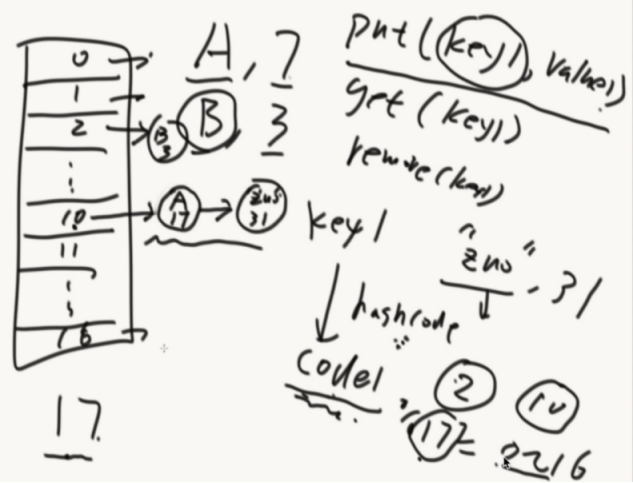 0
1
2
10
11
16
17
A, 7
B 3
B
3
A
17
31
put(key1, value1)
get(key1)
remove(key1)
key1
hashcode
code1
"zuo", 31
2
10
17 =
16